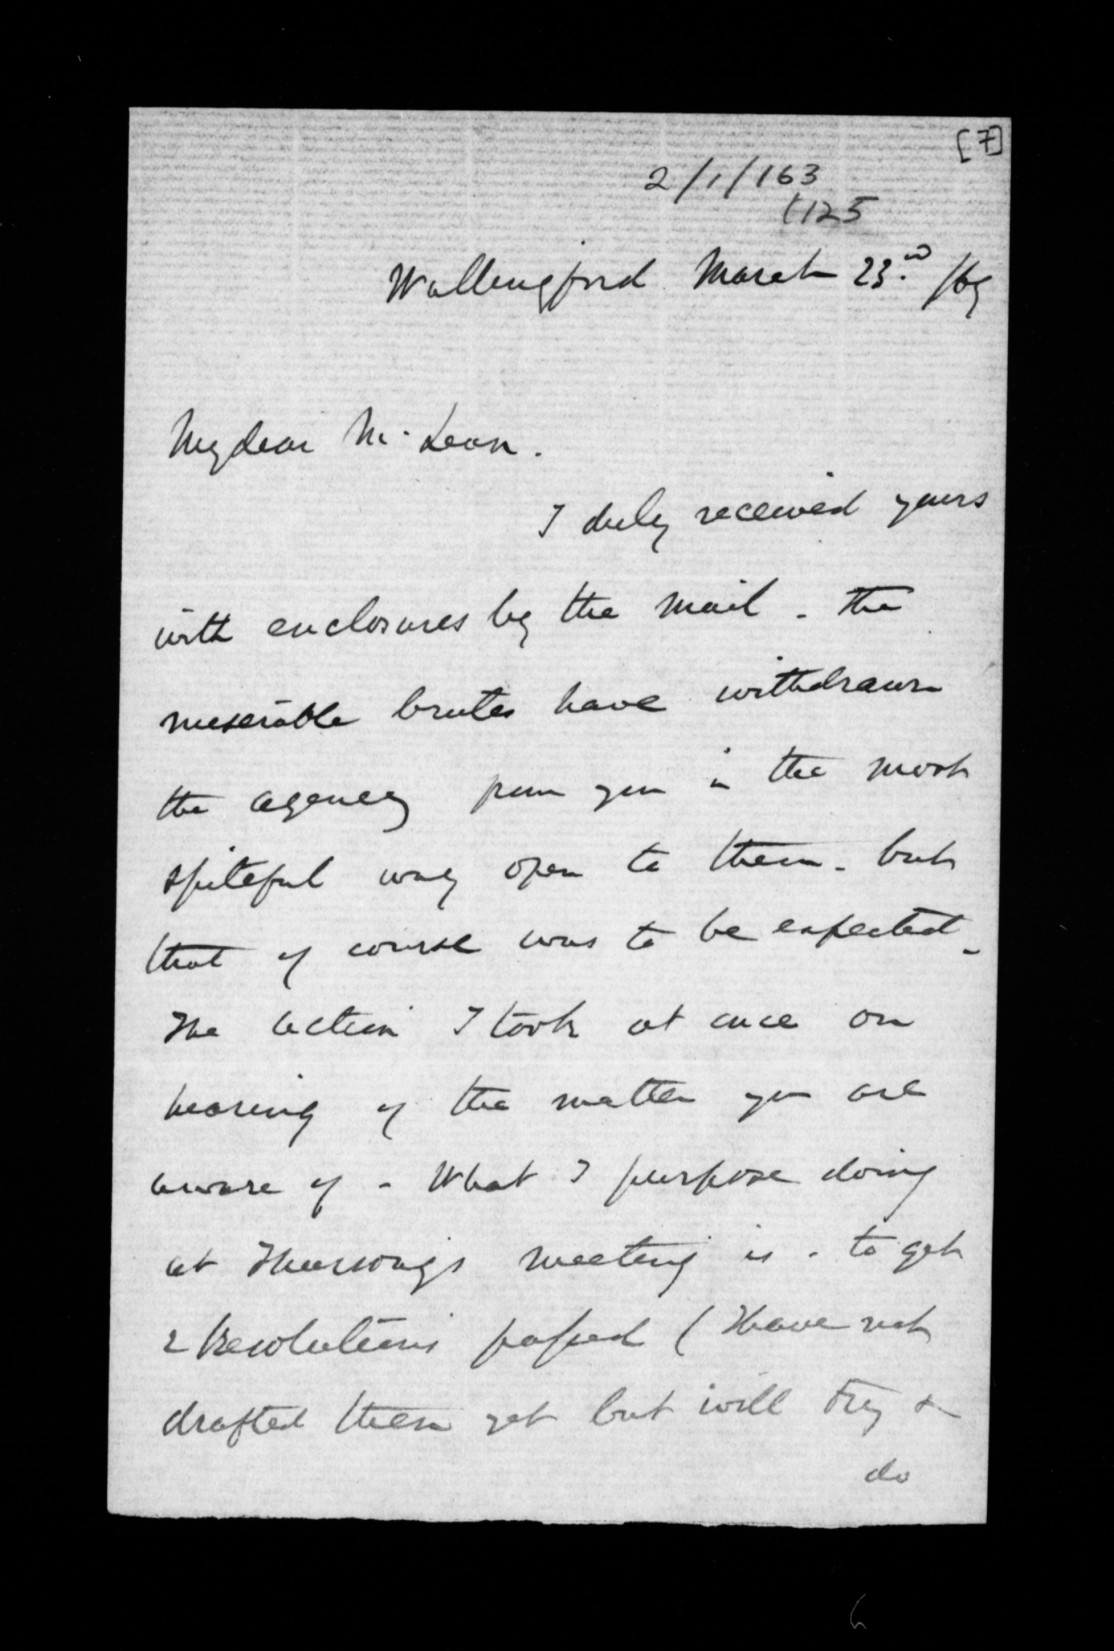 [7]
2/1/163
1125
Wallingford March 23rd /69
My dear McLean.
I duly received yours
with enclosures by the mail - the
miserable brutes have withdrawn
the agency from you in the most
spiteful way open to them - but
that of course was to be expected -
The action I took at once on
hearing of the matter you are
aware of - What I purpose doing
at Thursday's meeting is - to get
2 Resolutions passed (I have not
drafted them yet but will try &
do